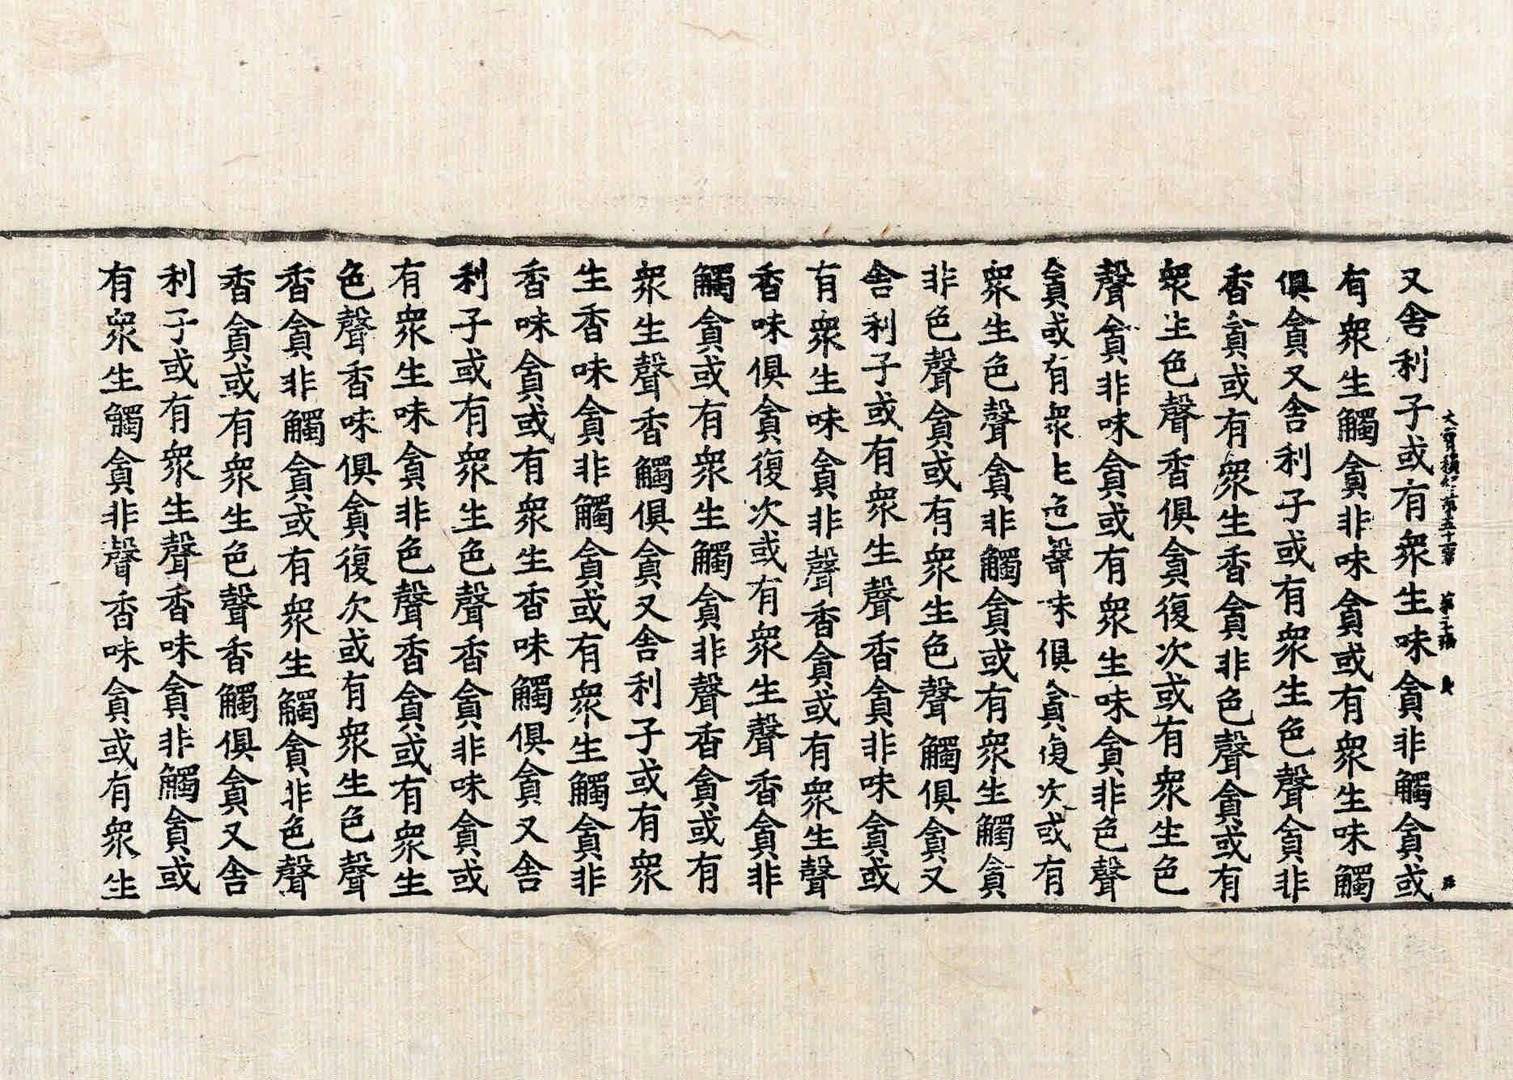 大寶積經第五十一卷 第三張
又舍利子或有衆生味貪非觸貪或
有衆生觸貪非味貪或有衆生味觸
俱貪又舍利子或有衆生色聲貪非
香貪或有衆生香貪非色聲貪或有
衆生色聲香俱貪復次或有衆生色
聲貪非味貪或有衆生味貪非色聲
貪或有衆生色聲味俱貪復次或有
衆生色聲貪非觸貪或有衆生觸貪
非色聲貪或有衆生色聲觸俱貪又
舍利子或有衆生聲香貪非味貪或
有衆生味貪非聲香貪或有衆生聲
香味俱貪復次或有衆生聲香貪非
觸貪或有衆生觸貪非聲香貪或有
衆生聲香觸俱貪又舍利子或有衆
生香味貪非觸貪或有衆生觸貪非
香味貪或有衆生香味觸俱貪又舍
利子或有衆生色聲香貪非味貪或
有衆生味貪非色聲香貪或有衆生
色聲香味俱貪復次或有衆生色聲
香貪非觸貪或有衆生觸貪非色聲
香貪或有衆生色聲香觸俱貪又舍
利子或有衆生聲香味貪非觸貪或
有衆生觸貪非聲香味貪或有衆生